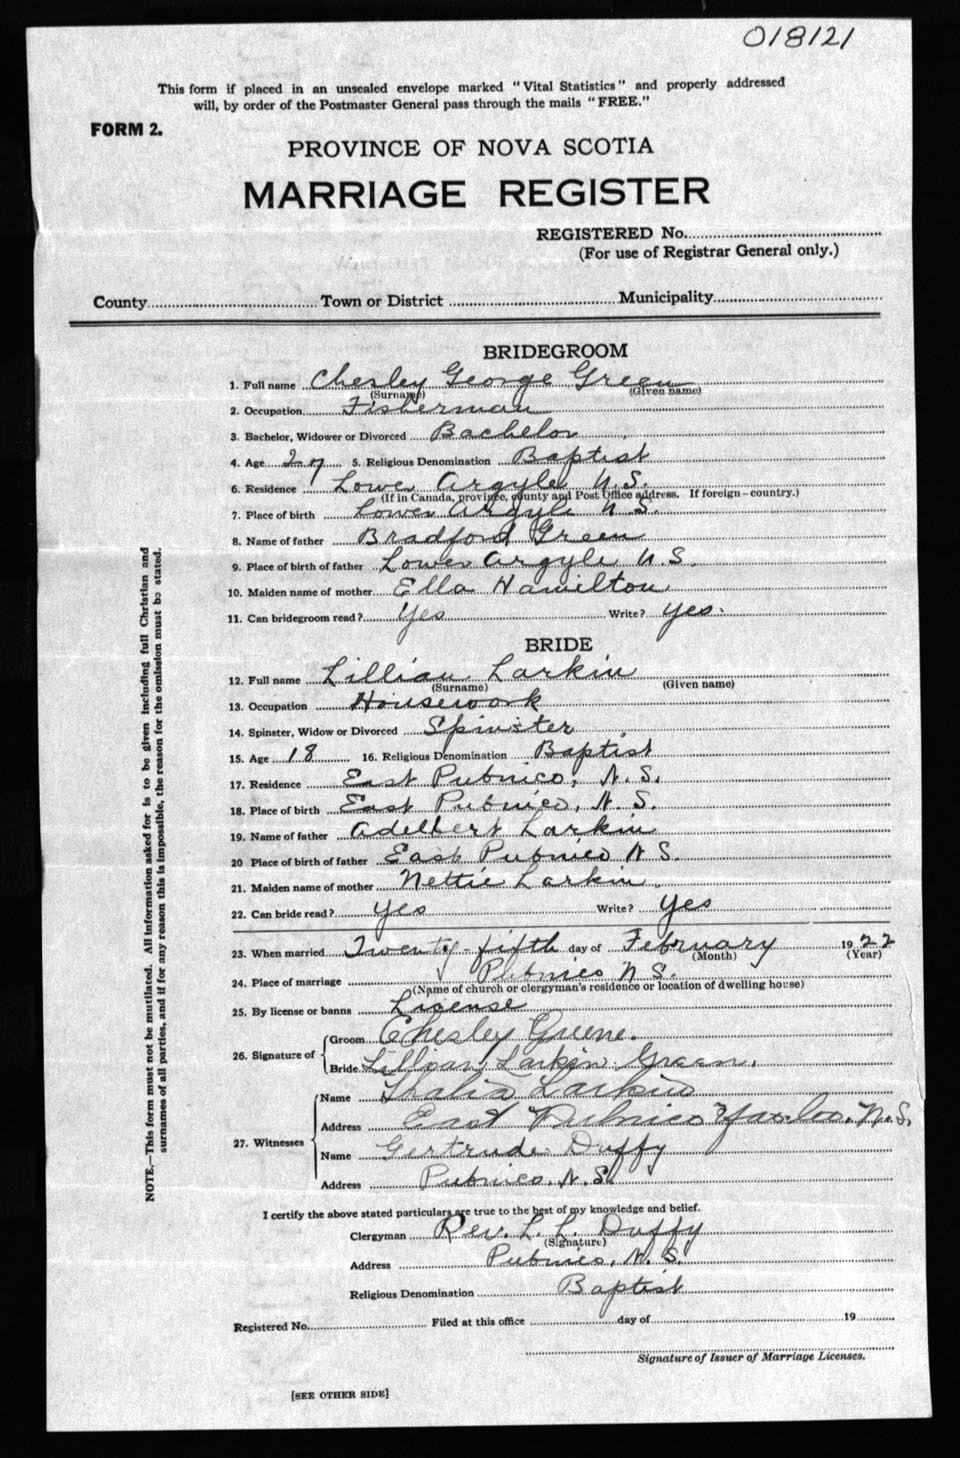 018121
This form if placed in an unsealed envelope marked "Vital Statistics" and properly addressed
will, by order of the Postmaster General pass through the mails "FREE."
FORM 2.
PROVINCE OF NOVA SCOTIA
MARRIAGE REGISTER
REGISTERED No.
(For use of Registrar General only.)
County Town or District Municipality
BRIDEGROOM
1. Full name Chesley George Green
(Surname) (Given name)
2. Occupation Fisherman
3. Bachelor, Widower or Divorced Bachelor
4. Age 27 5. Religious Denomination Baptist
6. Residence Lower Argyle N.S.
(If in Canada, province, county and Post Office address. If foreign-country.)
7. Place of birth Lower Argyle N S.
8. Name of father Bradford Green
9. Place of birth of father Lower Argyle N S.
10. Maiden name of mother Ella Hamilton
11. Can bridegroom read? Yes Write? Yes.
BRIDE
12. Full name Lillian Larkin
(Surname) (Given name)
13. Occupation Housework
14. Spinster, Widow or Divorced Spinster
15. Age 18 16. Religious Denomination Baptist
17. Residence East Pubnico, N.S.
18. Place of birth East Pubnico, N.S.
19. Name of father Adelbert Larkin
20 Place of birth of father East Pubnico N S.
21. Maiden name of mother Nettie Larkin
22. Can bride read? Yes Write? Yes
23. When married Twenty-fifth day of February 1922
(Month) (Year)
24. Place of marriage Pubnico N S.
(Name of church or clergyman's residence or location of dwelling house)
25. By license or banns License
26. Signature of Groom Chesley Greene.
Bride Lillian Larkin Green.
27. Witnesses Name Larkin
Address East Pubnico N.S.
Name Gertrude Duffy
Address Pubnico. N.S.
I certify the above stated particulars are true to the best of my knowledge and belief.
Clergyman Rev. L. L. Duffy
(Signature)
Address Pubnico, N.S.
Religious Denomination Baptist
Registered No. Filed at this office day of 19
Signature of Issuer of Marriage Licenses.
[SEE OTHER SIDE]
NOTE.—This form must not be mutilated. All information asked for is to be given including full Christian and
surnames of all parties, and if for any reason this is impossible, the reason for the omission must be stated.